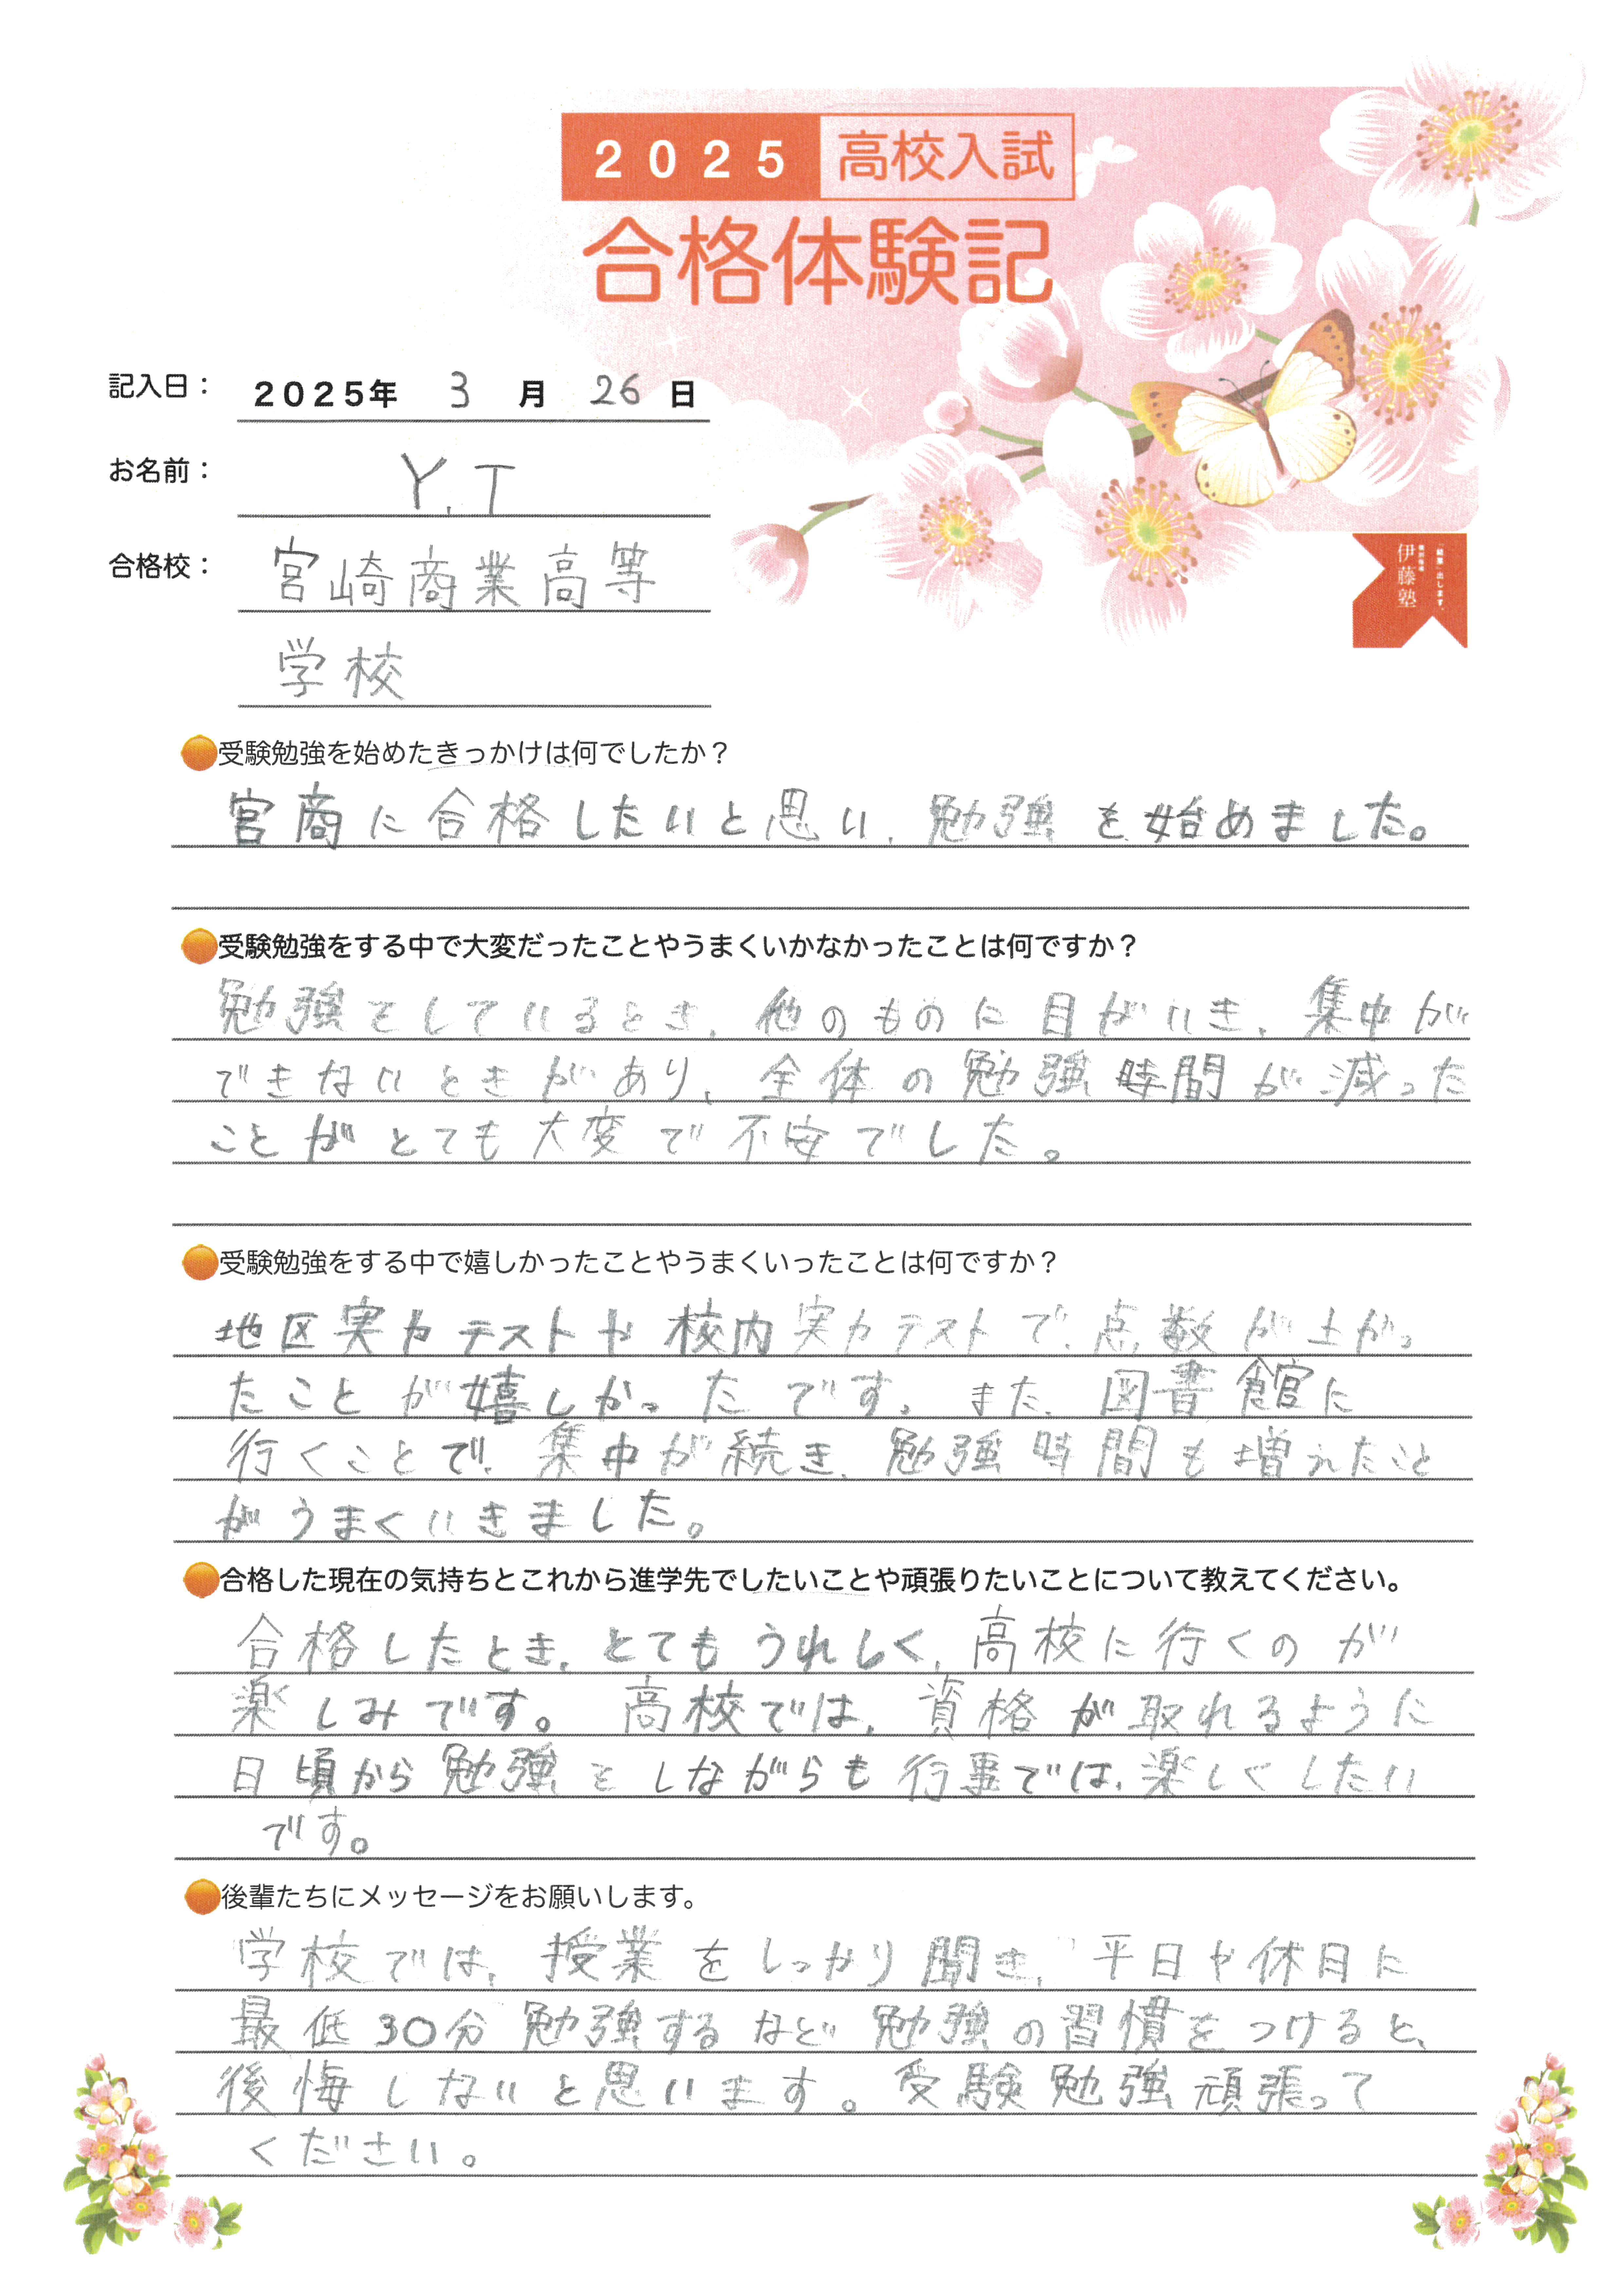 2025 高校入試
合格体験記
記入日： 2025年 3 月 26 日
お名前： Y.T
合格校： 宮崎商業高等
学校
「結果」出します。
個別指導
伊藤塾
受験勉強を始めたきっかけは何でしたか？
宮商に合格したいと思い、勉強を始めました。
受験勉強をする中で大変だったことやうまくいかなかったことは何ですか？
勉強をしているとき、他のものに目がいき、集中が
できないときがあり、全体の勉強時間が減った
ことがとても大変で不安でした。
受験勉強をする中で嬉しかったことやうまくいったことは何ですか？
地区実力テストや校内実力テストで、点数が上がっ
たことが嬉しかったです。また、図書館に
行くことで、集中が続き、勉強時間も増えたこと
がうまくいきました。
合格した現在の気持ちとこれから進学先でしたいことや頑張りたいことについて教えてください。
合格したとき、とてもうれしく、高校に行くのが
楽しみです。高校では、資格が取れるように
日頃から勉強をしながらも行事では、楽しくしたい
です。
後輩たちにメッセージをお願いします。
学校では、授業をしっかり聞き、平日や休日に
最低30分勉強するなど勉強の習慣をつけると、
後悔しないと思います。受験勉強頑張って
ください。